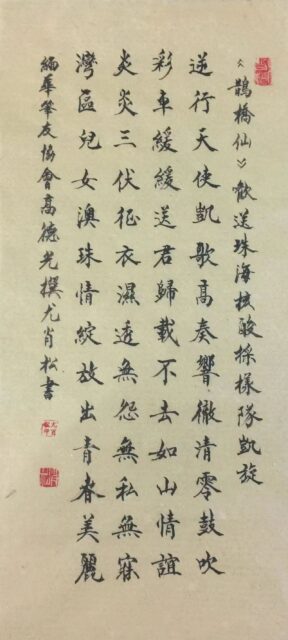 《鵲橋仙》歡送珠海核酸採樣隊凱旋
逆行天使凱歌高奏響徹清零鼓吹
彩車緩緩送君歸載不去如山情誼
炎炎三伏征衣濕透無怨無私無寐
灣區兒女澳珠情綻放出青春美麗
緬華筆友協會高德光撰尤肖松書